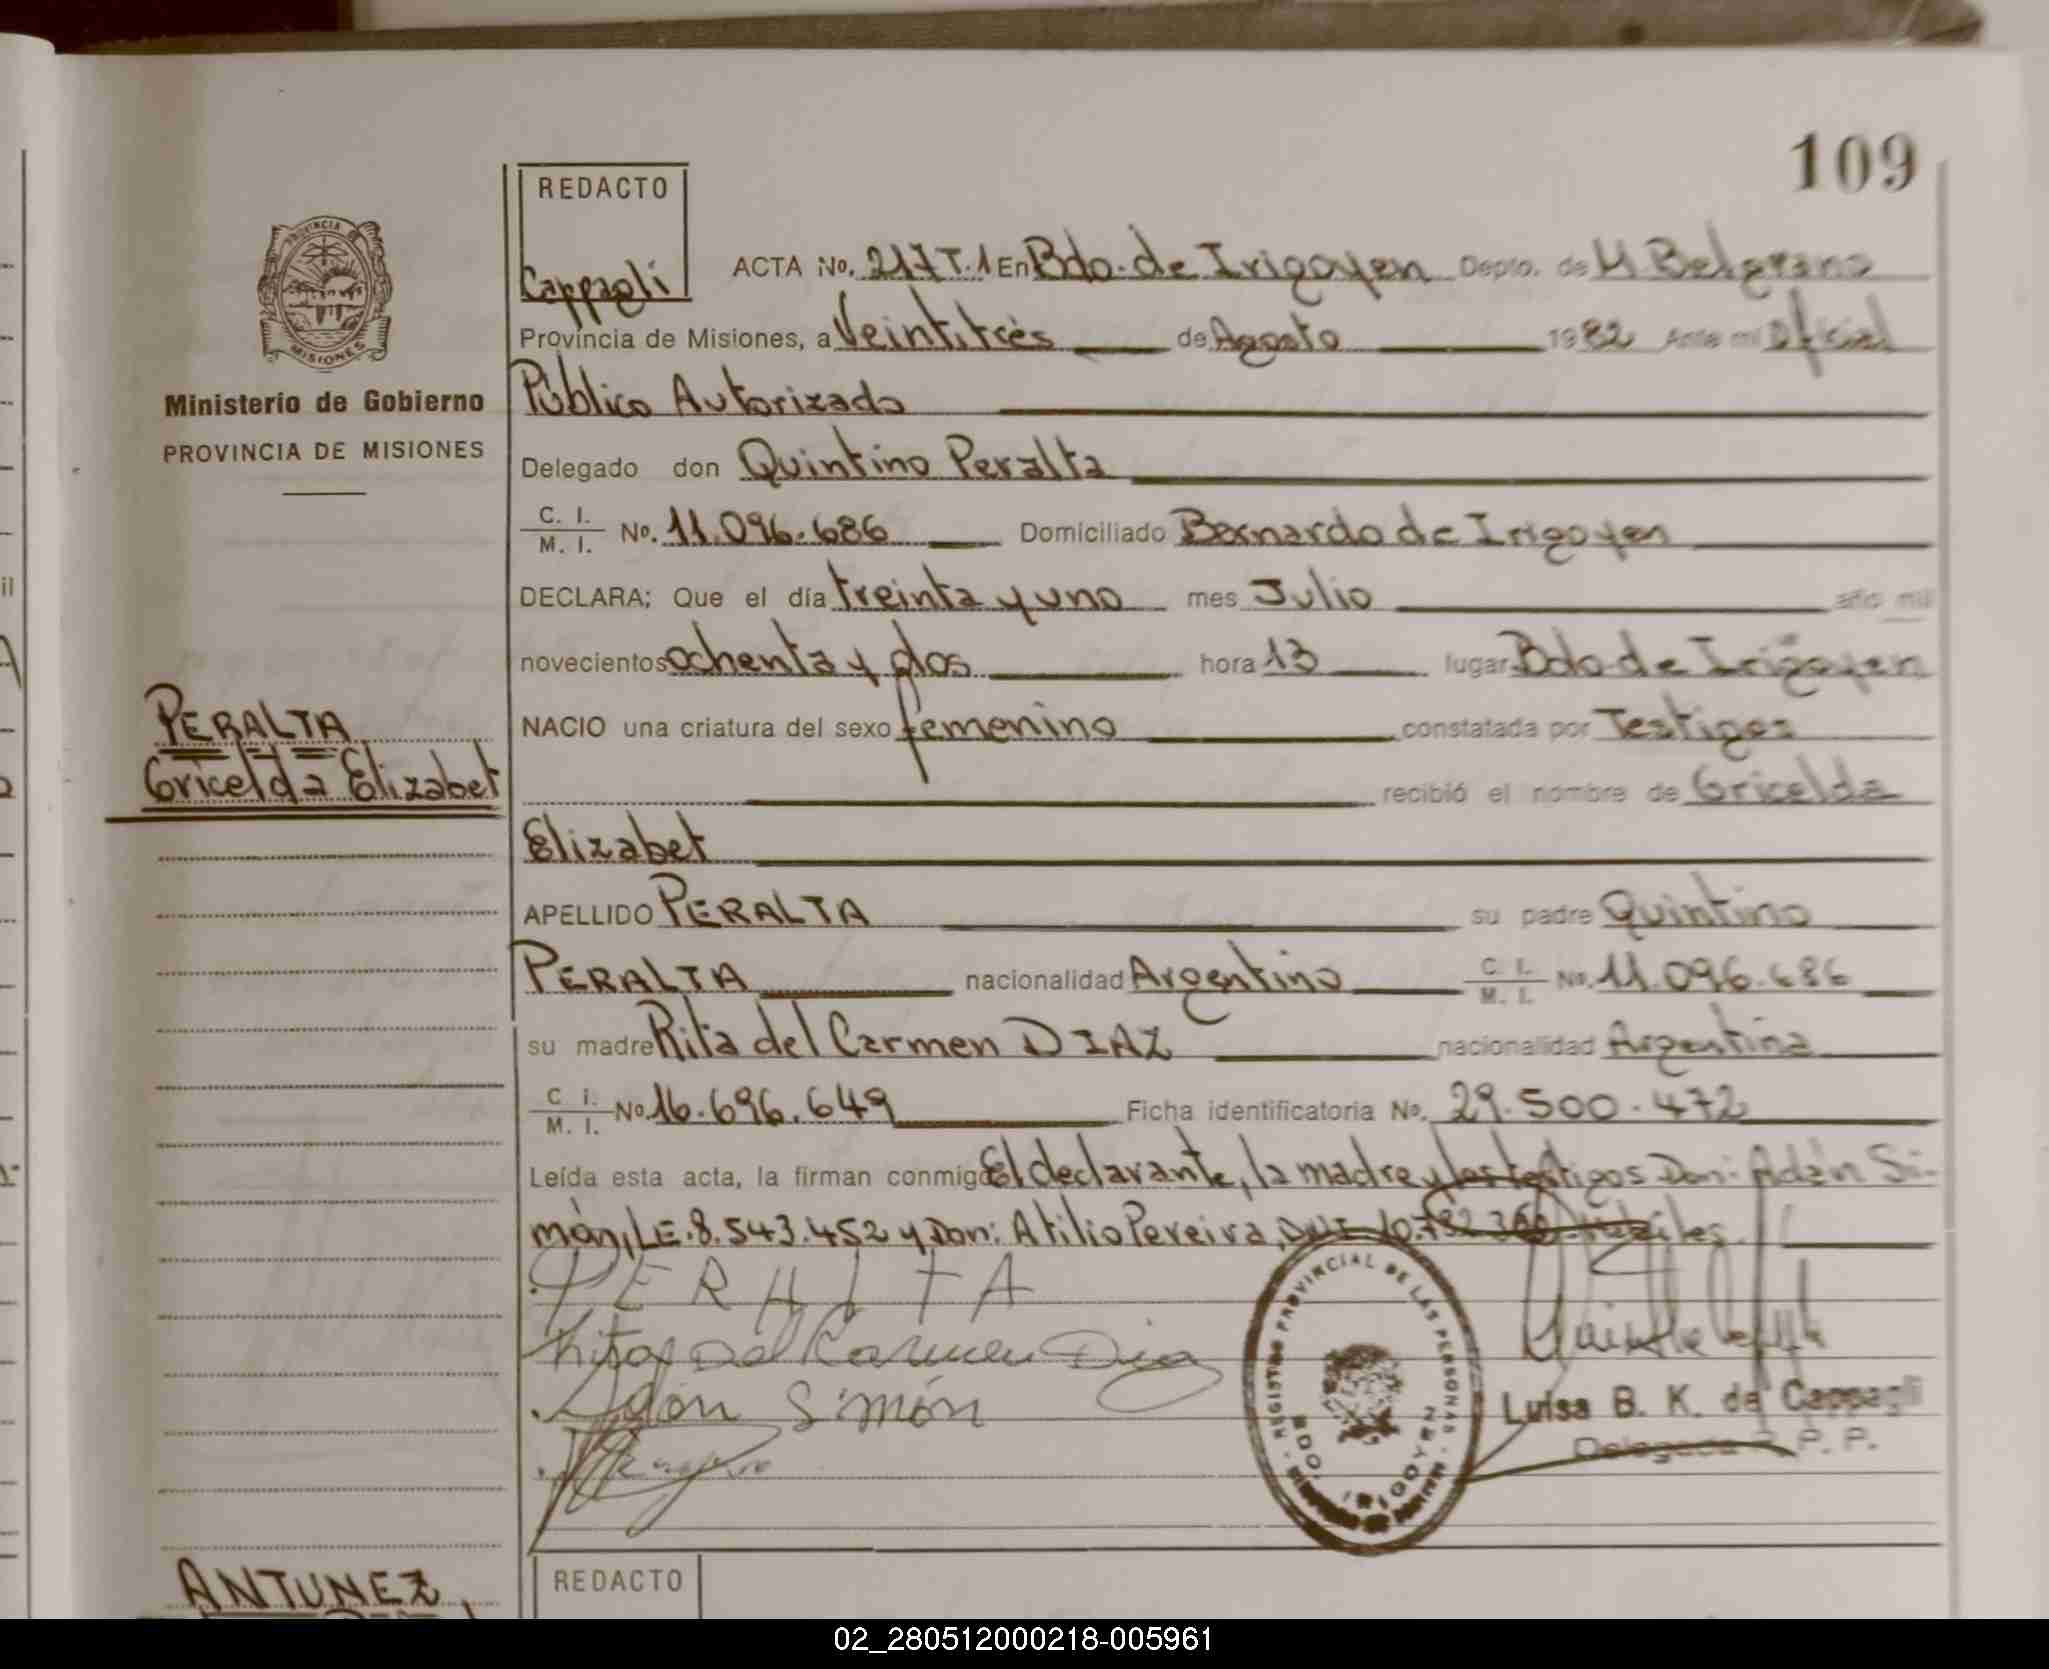 109
REDACTO
Cappagli
ACTA No. 217 T.1 En Bdo. de Irigoyen Depto. de M. Belgrano
Provincia de Misiones, a Veintitrés de Agosto 1982 Ante mi Oficial
Público Autorizado
Delegado don Quintino Peralta
C. I. / M. I. No. 11.096.686 Domiciliado Bernardo de Irigoyen
DECLARA; Que el día treinta y uno mes Julio año mil
novecientos ochenta y dos hora 13 lugar Bdo de Irigoyen
NACIO una criatura del sexo femenino constatada por Testigos
recibió el nombre de Gricelda
Elizabet
APELLIDO PERALTA su padre Quintino
PERALTA nacionalidad Argentino C. I. / M. I. No. 11.096.686
su madre Rita del Carmen DIAZ nacionalidad Argentina
C. I. / M. I. No. 16.696.649 Ficha identificatoria No. 29.500.472
Leída esta acta, la firman conmigo El declarante, la madre y los testigos Don: Adán Si-
món, LE. 8.543.452 y Don: Atilio Pereira,
PERALTA
Rita Del Carmen Diaz
Adán Simón
REGISTRO PROVINCIAL DE LAS PERSONAS
BDO. IRIGOYEN
Luisa B. K. de Cappagli
Delegada R. P. P.
REDACTO
PROVINCIA DE
MISIONES
Ministerio de Gobierno
PROVINCIA DE MISIONES
PERALTA
Gricelda Elizabet
ANTUNEZ
02_280512000218-005961